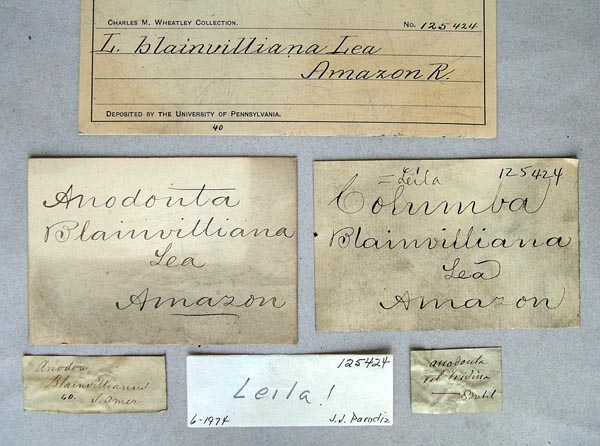 CHARLES M. WHEATLEY COLLECTION. No. 125424
L. blainvilliana Lea
Amazon R.
DEPOSITED BY THE UNIVERSITY OF PENNSYLVANIA.
40
Anodonta
Blainvilliana
Lea
Amazon
= Leila 125424
Columba
Blainvilliana
Lea
Amazon
Anodon
Blainvilliana
40. S. Amer
125424
Leila!
6-1974 J.J. Parodiz
anodonta
Brésil